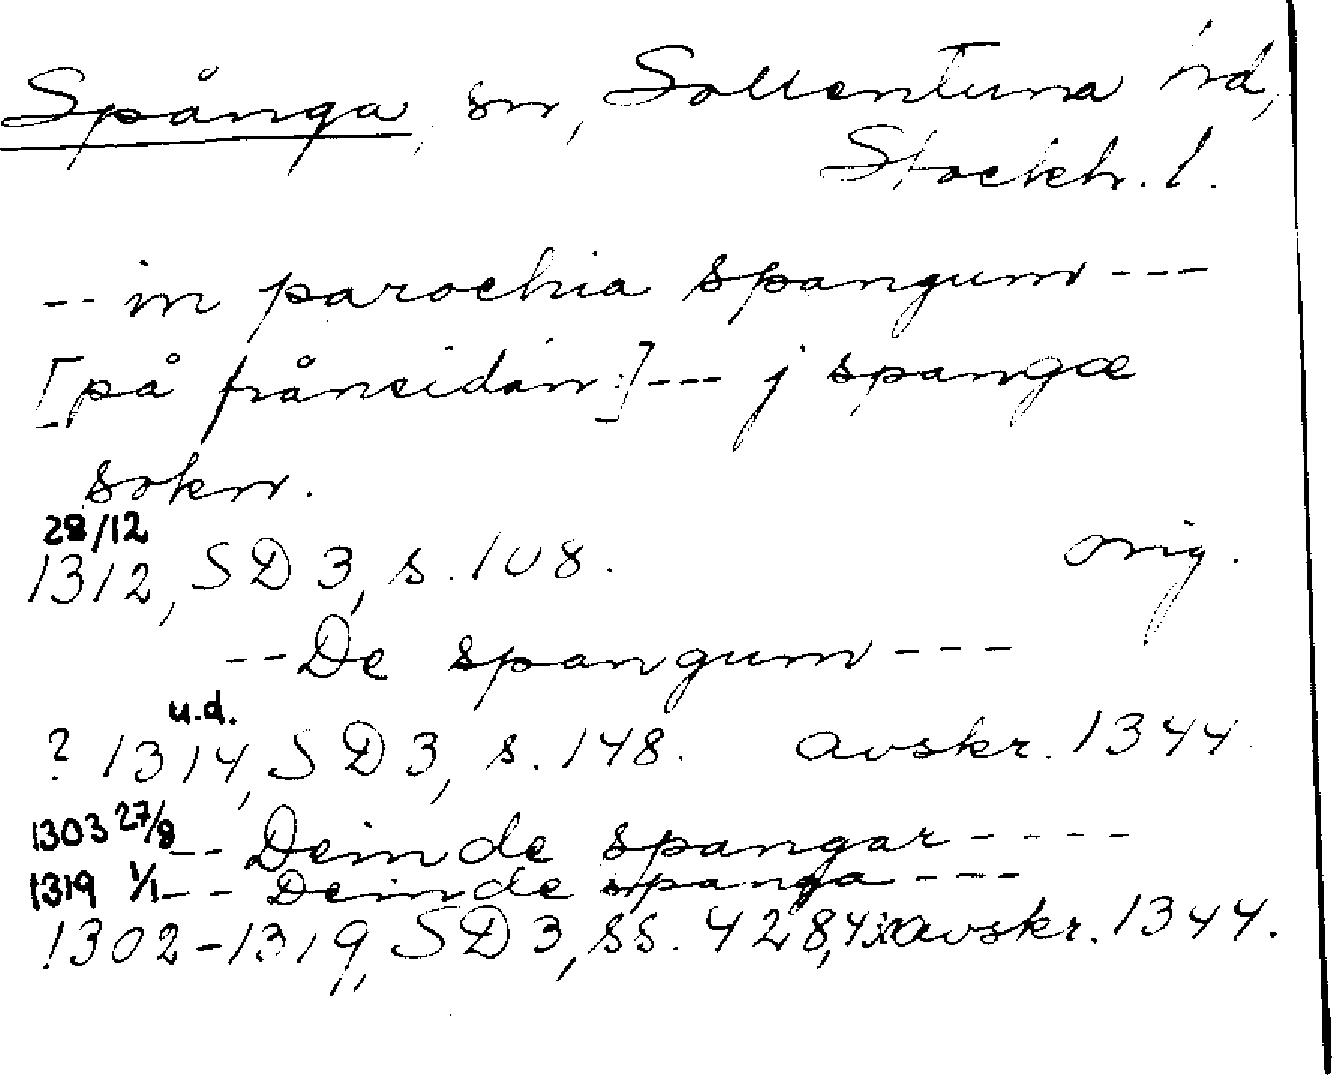 Spånga, sn, Sollentuna hd,
Stockh. l.
-- in parochia spangum ---
[på frånsidan:] --- j spangæ
sokn.
28/12
1312, SD 3, s. 108. orig.
-- De spangum ---
u.d.
? 1314, SD 3, s. 148. avskr. 1344.
1303 27/8 -- Deinde spangar -----
1319 1/1 -- Deinde spanga ---
1302-1319, SD 3, ss. 428, avskr. 1344.